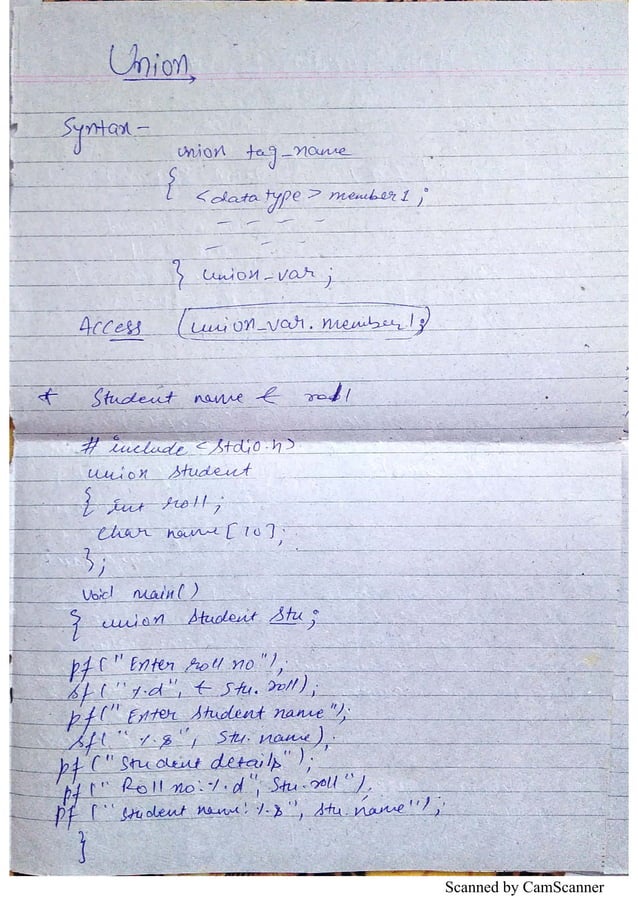 Union
Syntax -
union tag_name
{
<datatype> member1;
- - - -
- - -
} union_var;
Access (union_var.member1;)
* Student name & roll
#include <stdio.h>
union student
{ int roll;
char name[10];
};
void main()
{ union student stu;
pf("Enter roll no");
sf("%d", & stu.roll);
pf("Enter student name");
sf("%s", stu.name);
pf("Student details");
pf("Roll no:%d", stu.roll");
pf("Student name:%s", stu.name");
}
Scanned by CamScanner